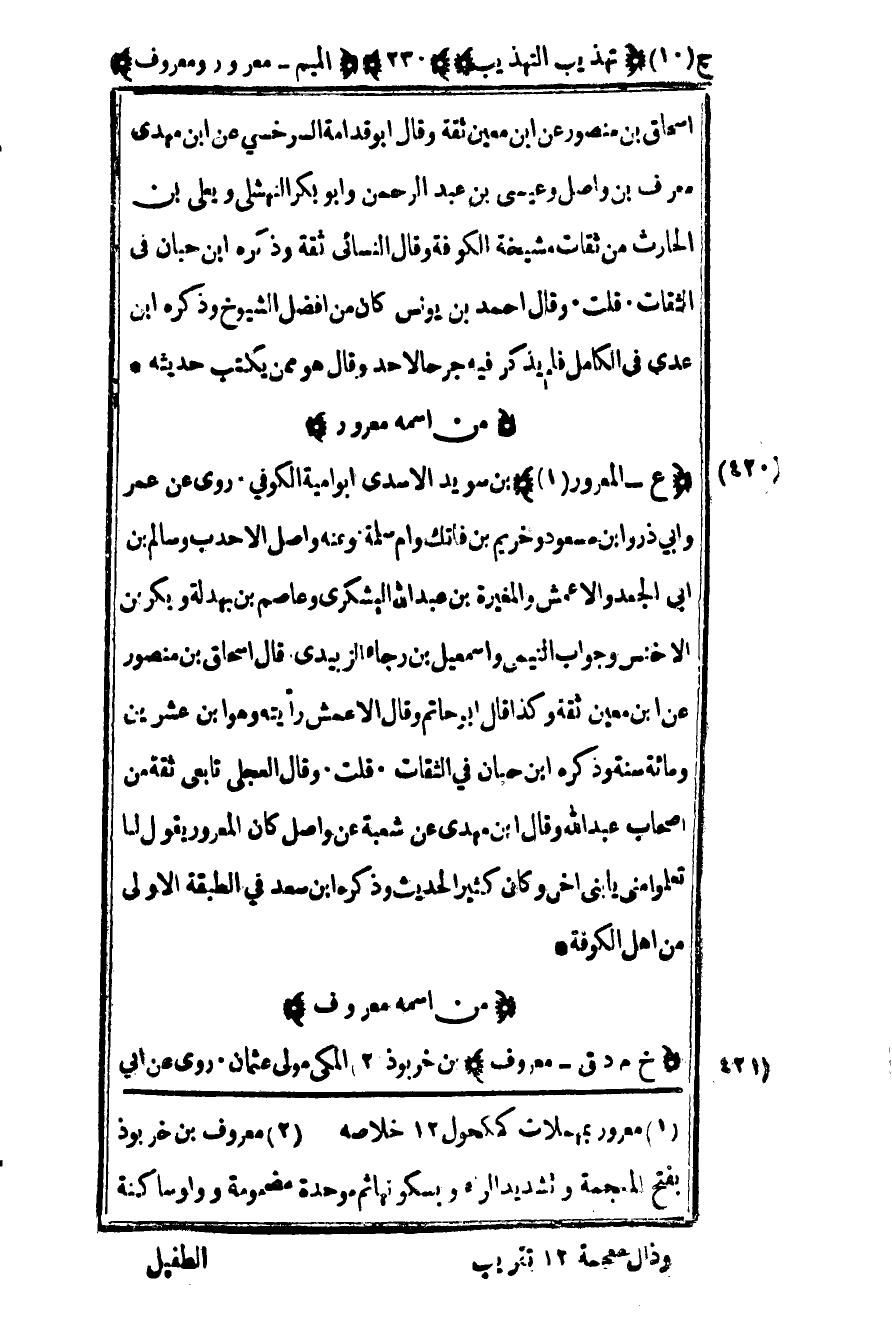 ج(١٠) ﴿ تهذيب التهذيب ﴾ ﴿٢٣٠﴾ ﴿ الميم ـ معرور ومعروف ﴾
اسحاق بن منصور عن ابن معين ثقة وقال ابو قدامة السرخسي عن ابن مهدى
معرف بن واصل وعيسى بن عبد الرحمن وابو بكر النهشلى ويعلى بن
الحارث من ثقات مشيخة الكوفة وقال النسائى ثقة وذكره ابن حبان فى
الثقات · قلت · وقال احمد بن يونس كان من افضل الشيوخ وذكره ابن
عدي فى الكامل فلم يذكر فيه جرحا لاحد وقال هو ممن يكتب حديثه *
﴿ من اسمه معرور ﴾
(٤٢٠) ﴿ ع ـ المعرور (١) ﴾ بن سويد الاسدى ابو امية الكوفي · روى عن عمر
وابي ذر وابن مسعود وخريم بن فاتك وام سلمة · وعنه واصل الاحدب وسالم بن
ابي الجعد والاعمش والمغيرة بن عبدالله اليشكرى وعاصم بن بهدلة وبكر بن
الاخنس وجواب التيمى واسمعيل بن رجاء الزبيدى · قال اسحاق بن منصور
عن ابن معين ثقة وكذا قال ابو حاتم وقال الاعمش رأيته وهو ابن عشرين
ومائة سنة وذكره ابن حبان في الثقات · قلت · وقال العجلى تابعى ثقة من
اصحاب عبدالله وقال ابن مهدى عن شعبة عن واصل كان المعرور يقول لنا
تعلموا منى يا بنى اخى وكان كثير الحديث وذكره ابن سعد في الطبقة الاولى
من اهل الكوفة *
﴿ من اسمه معروف ﴾
(٤٢١) ﴿ خ م د ق ـ معروف ﴾ بن خربوذ (٢) المكى مولى عثمان · روى عن ابي
(١) معرور بمهملات كمكحول ١٢ خلاصه (٢) معروف بن خربوذ
بفتح المعجمة وتشديد الراء وبسكونها ثم موحدة مضمومة وواو ساكنة
وذال معجمة ١٢ تقريب الطفيل